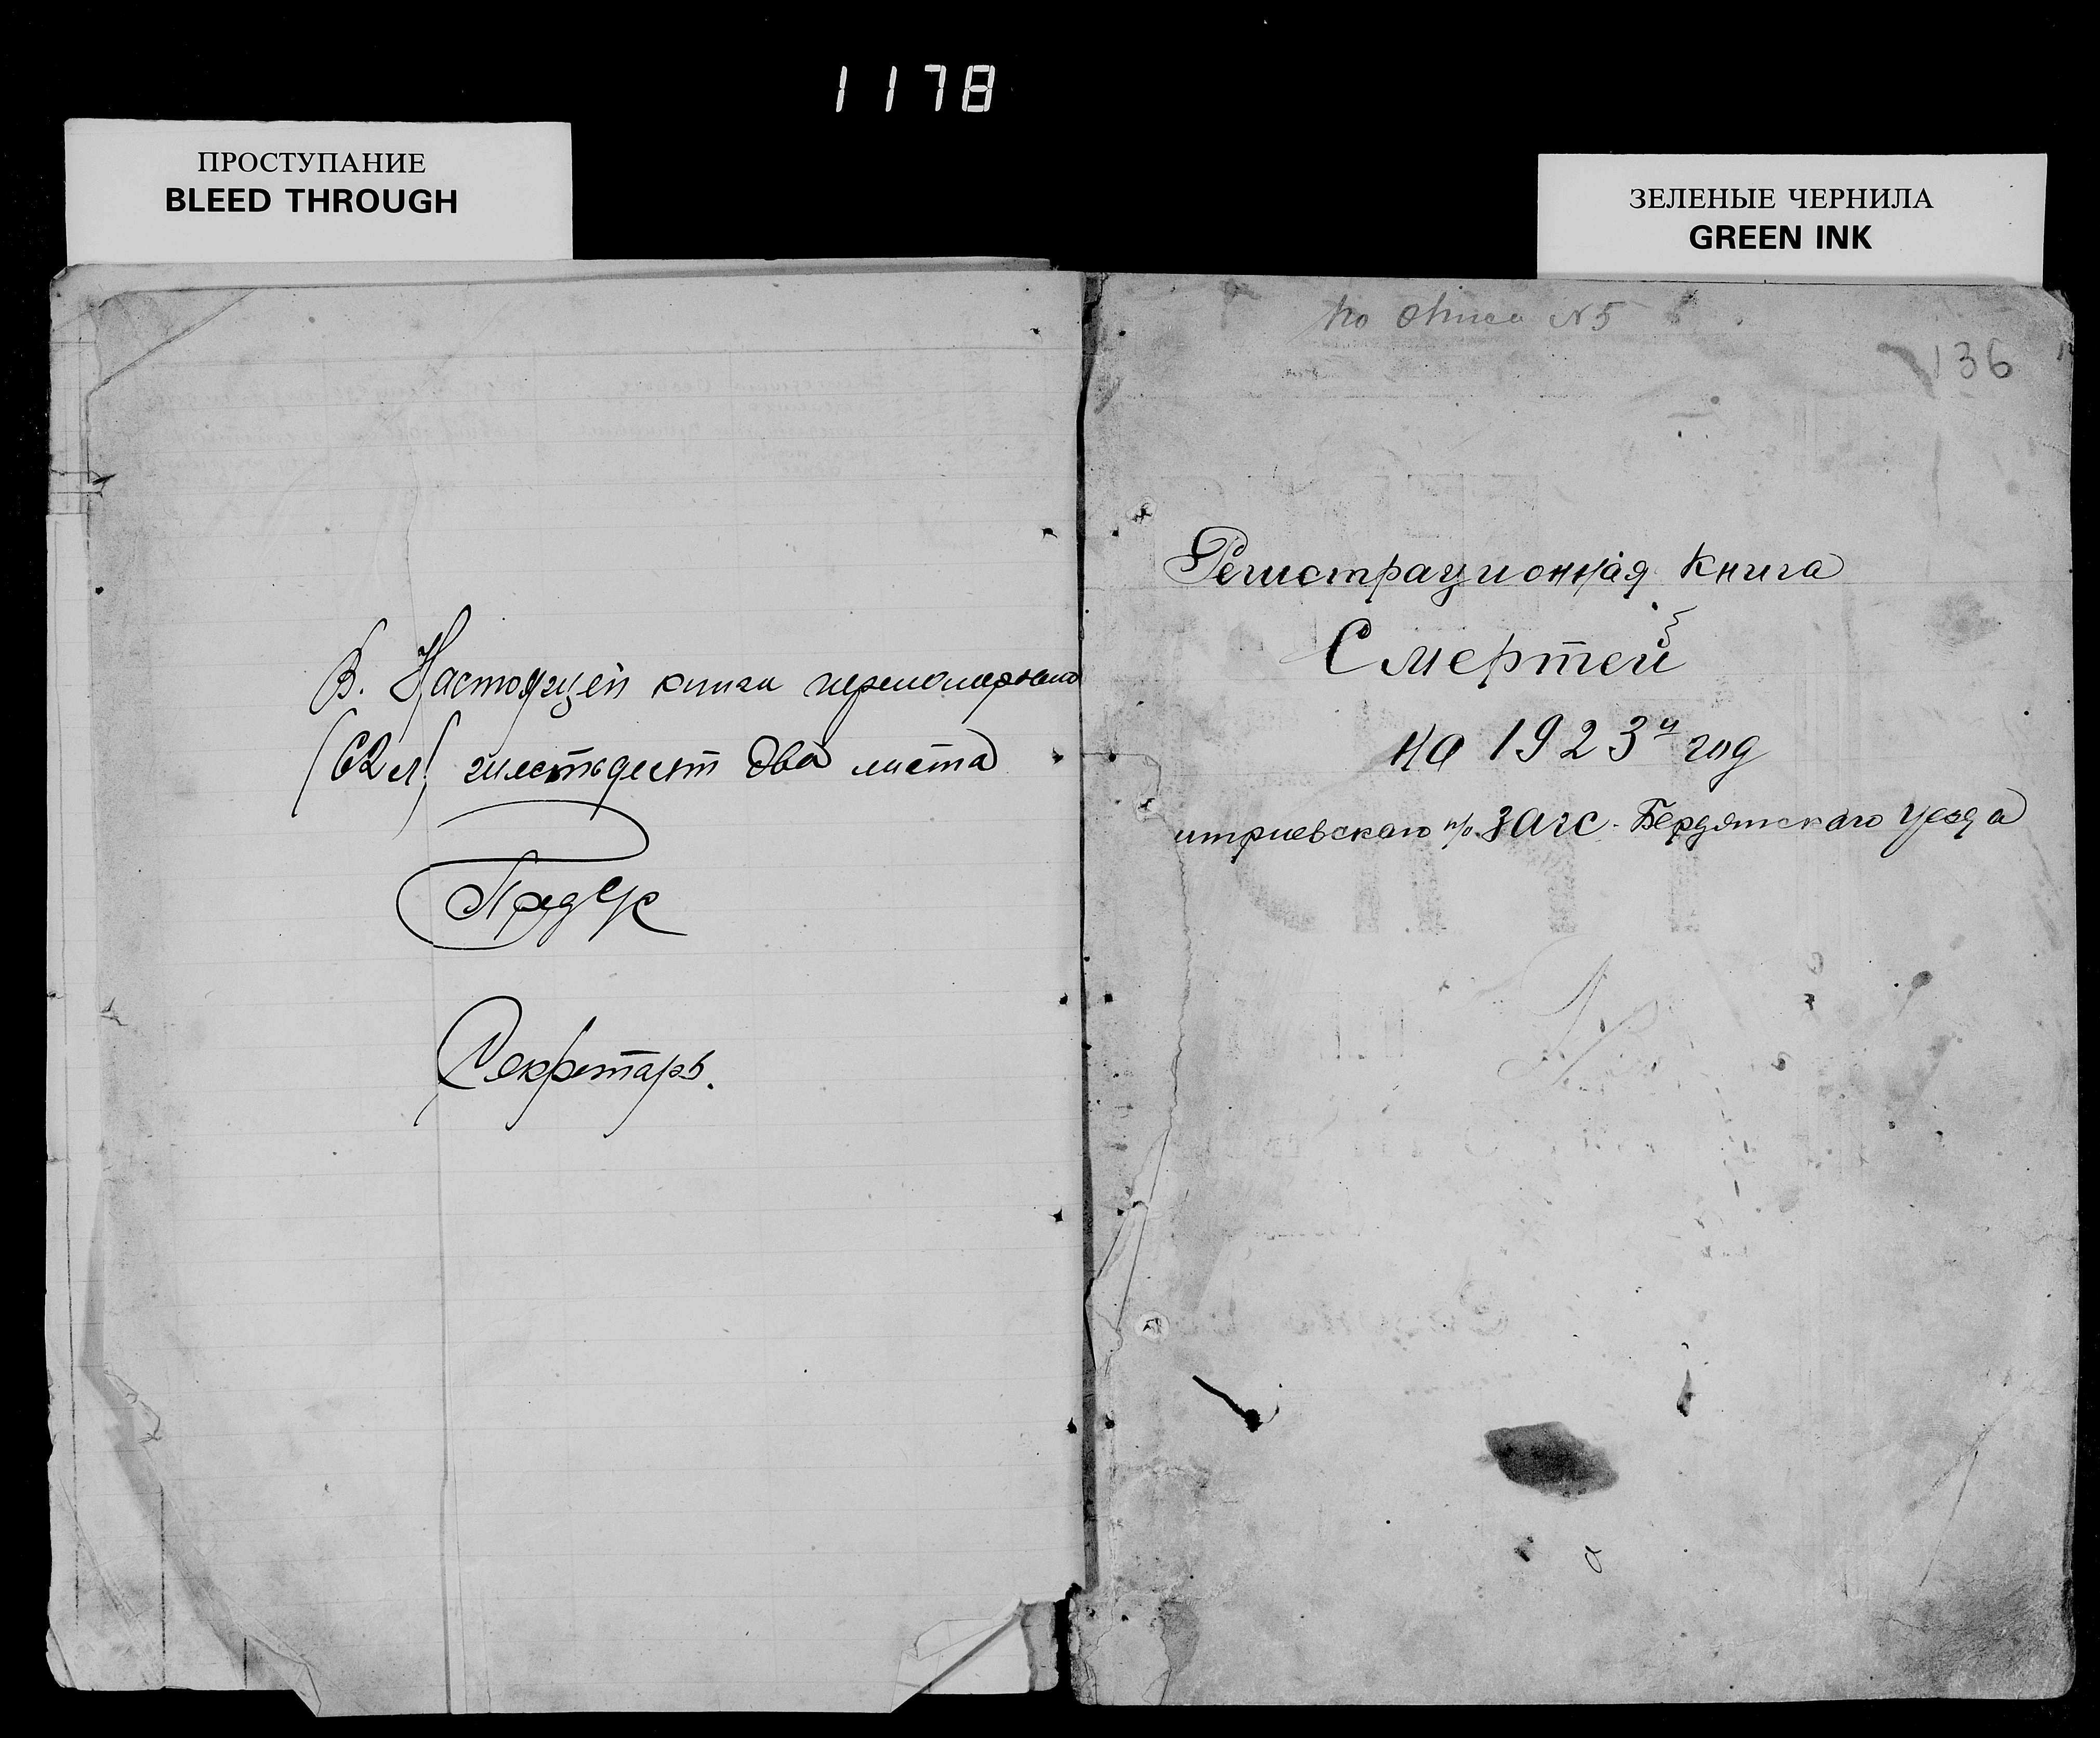 1178
ПРОСТУПАНИЕ
BLEED THROUGH
ЗЕЛЕНЫЕ ЧЕРНИЛА
GREEN INK
В. Настоящей книги перономеровано
(62 л) шестьдесят два листа
Пред
Секретарь.
По описи №5
136
Регистрационная Книга
Смертей
на 1923й год
итриевскаго п/о. ЗАГС. Бердянскаго Уезда